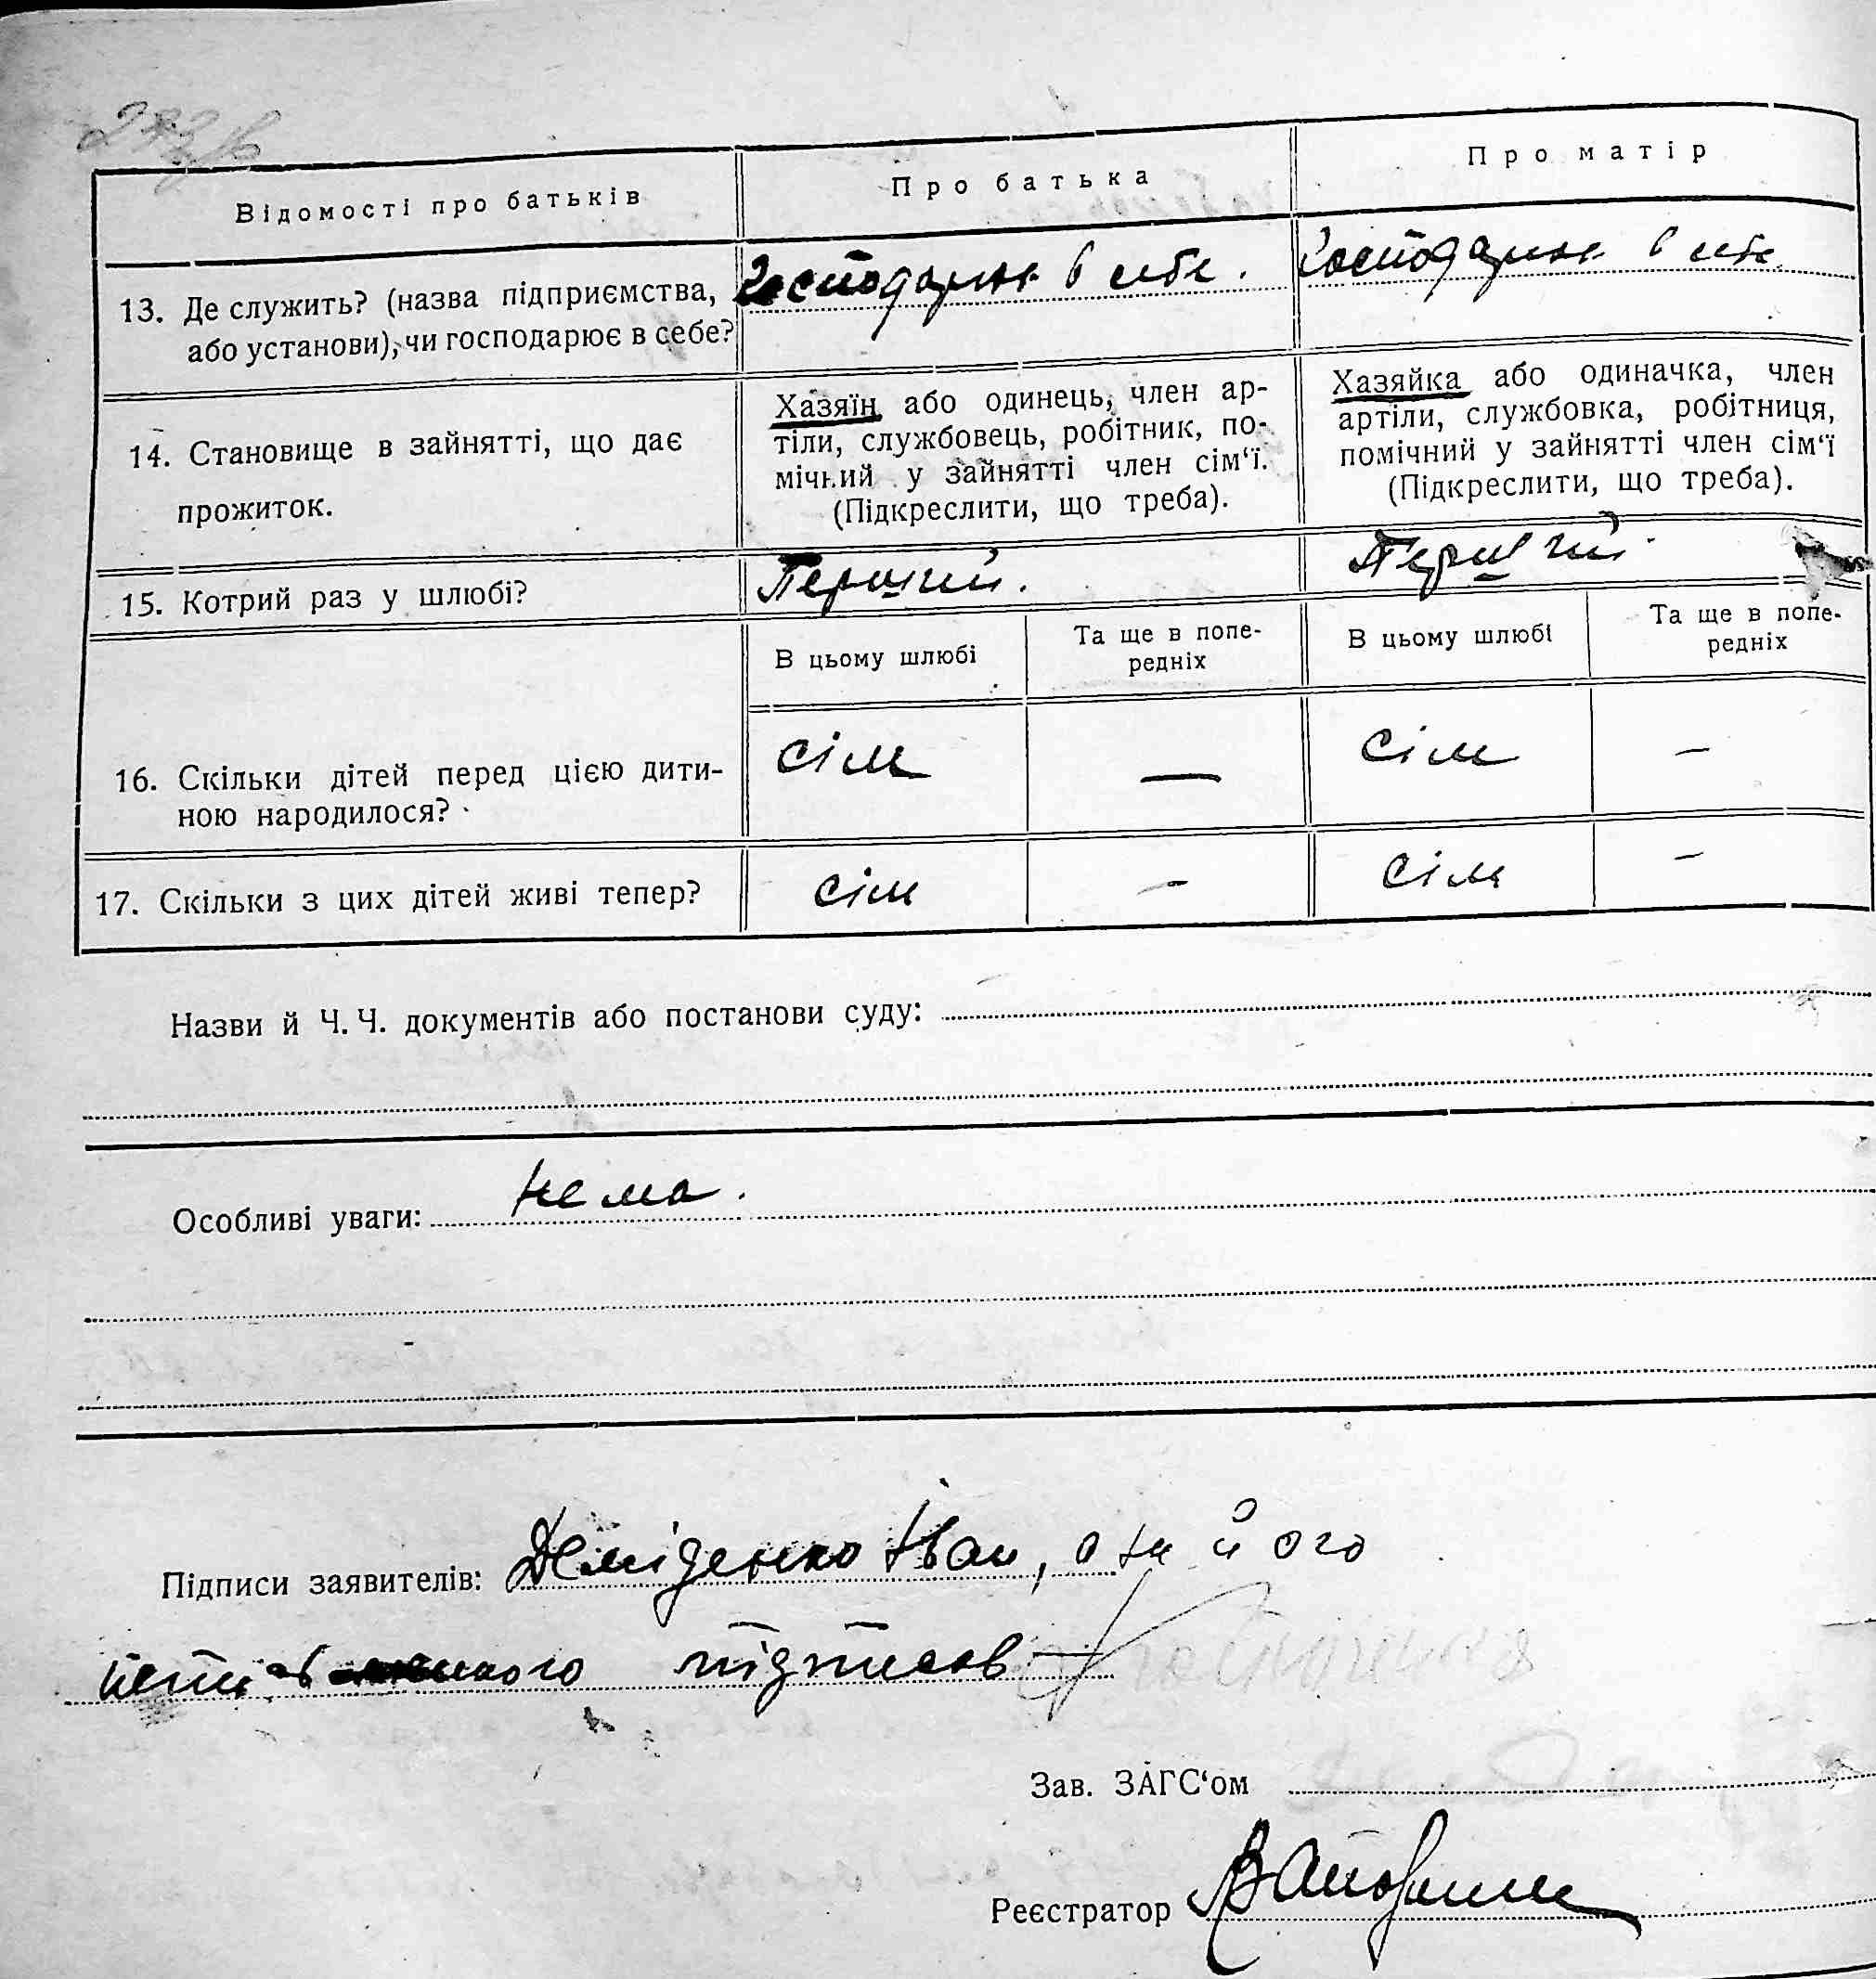 Відомості про батьків
Про батька
Про матір
13. Де служить? (назва підприємства,
або установи), чи господарює в себе?
Господарює в себе.
Господарює в себе
14. Становище в зайнятті, що дає
прожиток.
Хазяїн або одинець, член ар-
тіли, службовець, робітник, по-
мічний у зайнятті член сім‘ї.
(Підкреслити, що треба).
Хазяйка або одиначка, член
артіли, службовка, робітниця,
помічний у зайнятті член сім‘ї
(Підкреслити, що треба).
15. Котрий раз у шлюбі?
Перший.
Перший
В цьому шлюбі
Та ще в попе-
редніх
В цьому шлюбі
Та ще в попе-
редніх
16. Скільки дітей перед цією дити-
ною народилося?
сім
—
сім
—
17. Скільки з цих дітей живі тепер?
сім
—
сім
—
Назви й Ч. Ч. документів або постанови суду:
Особливі уваги: нема.
Підписи заявителів: Деміденко Іван, а за його
підписав
Зав. ЗАГС‘ом
Реєстратор